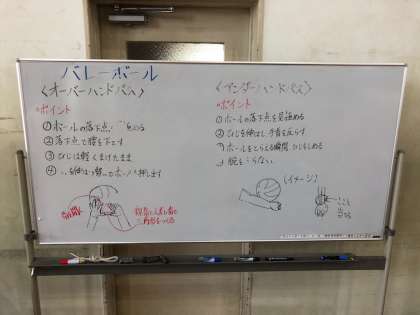 バレーボール
〈オーバーハンドパス〉
ポイント
①ボールの落下点
②落下点で腰を下す
③ひじは軽くまげたまま
④
〈アンダーハンドパス〉
ポイント
①ボールの落下点を見極める
②ひじを伸ばし手首を反らす
③ボールをとらえる瞬間ひじをしめる
腕を
(イメージ)
親指と人差し指で
三角形をつくる
ここに
当てる